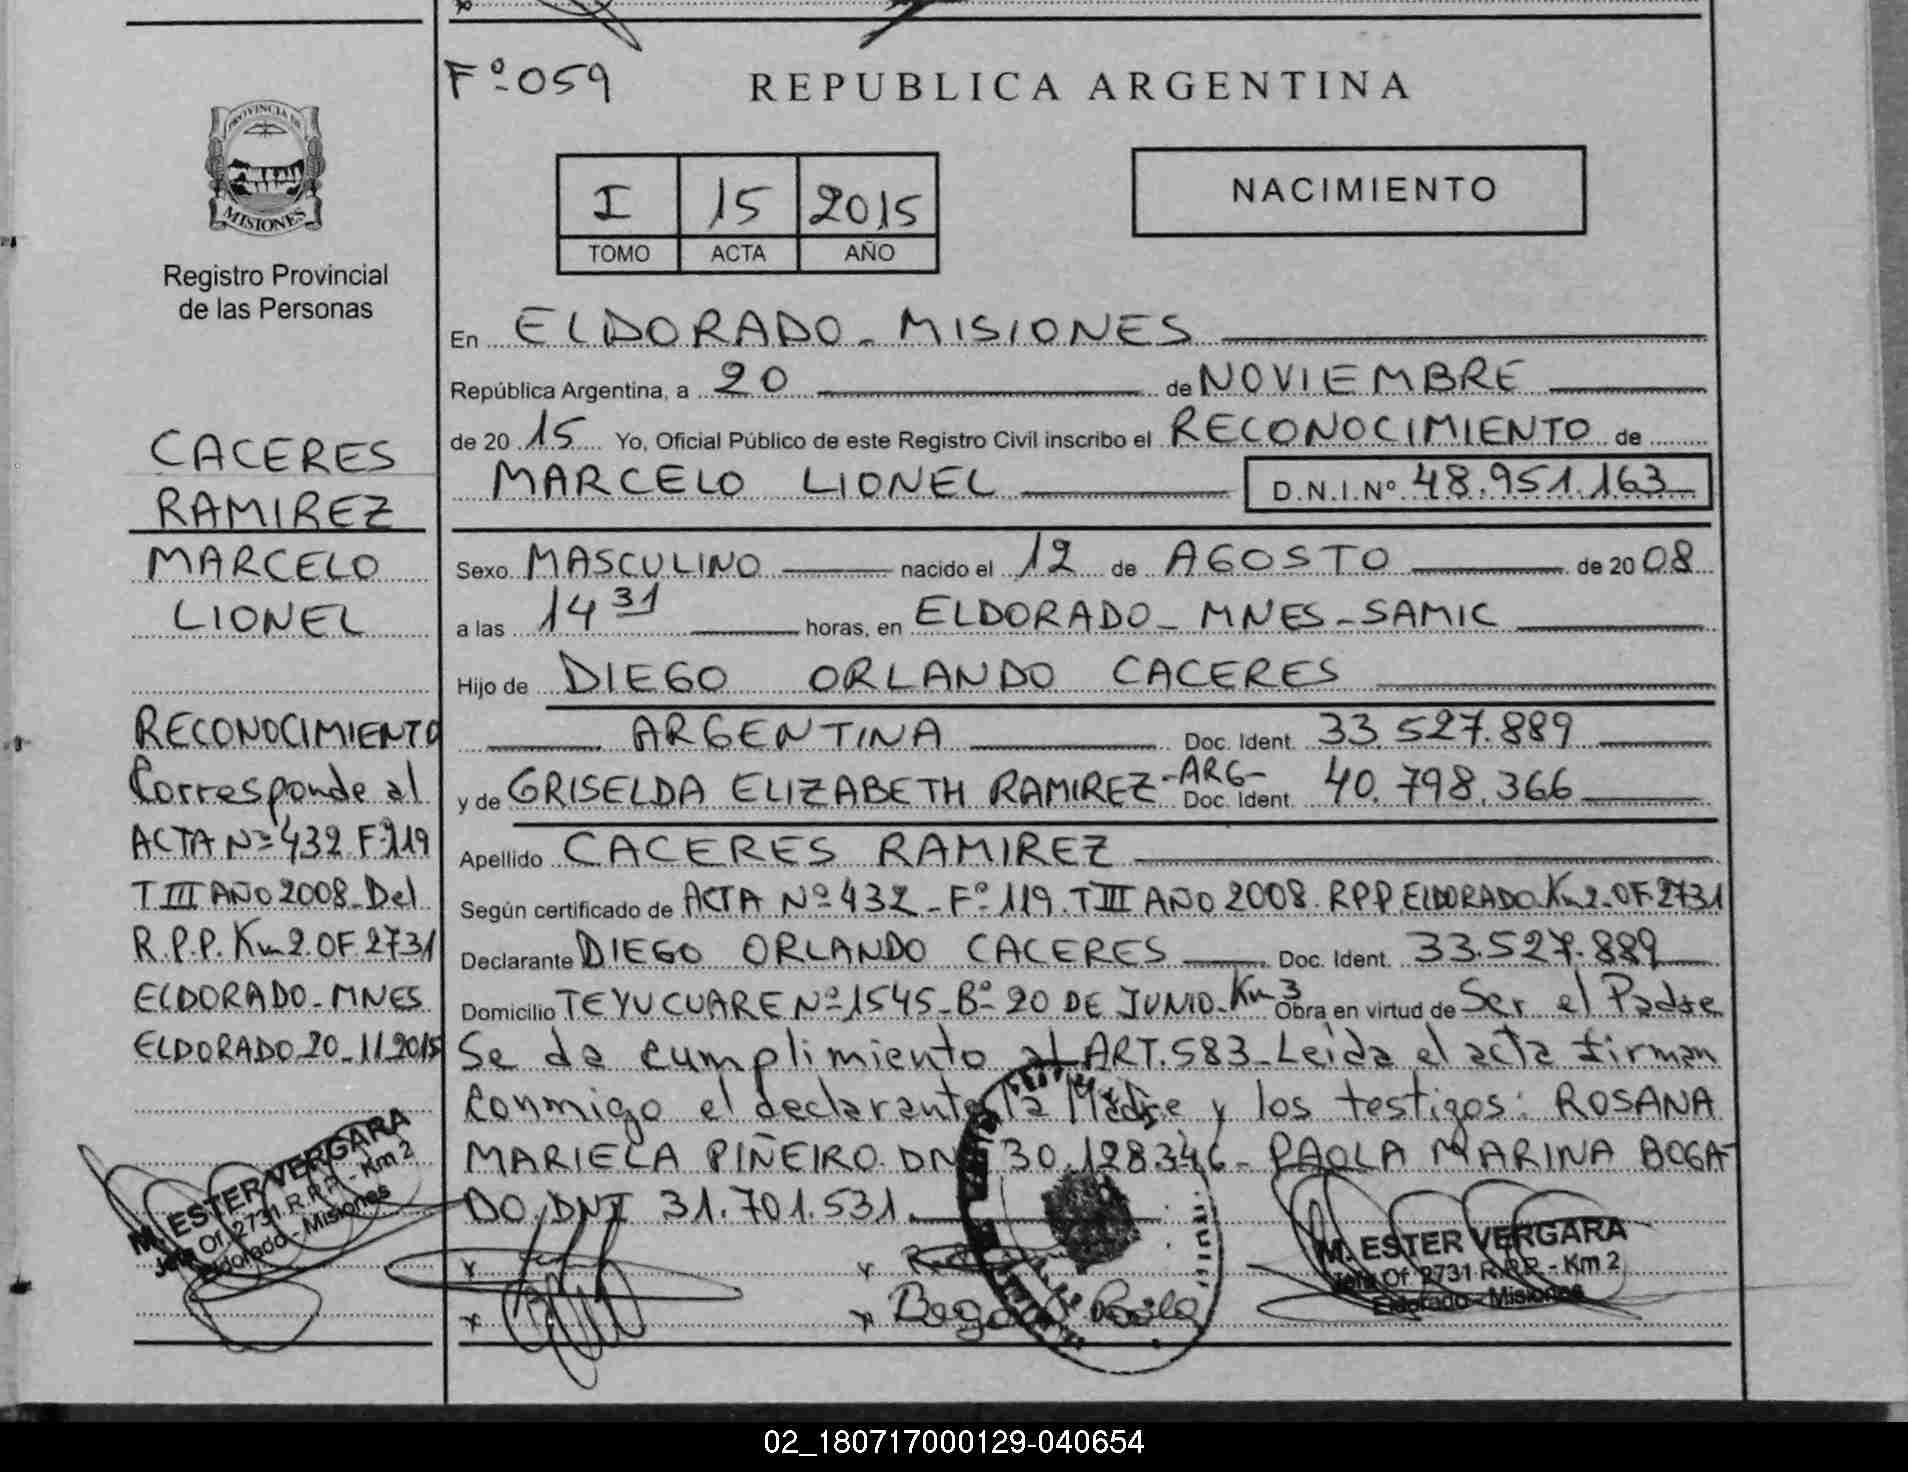 Fº 059
REPUBLICA ARGENTINA
PROVINCIA DE
MISIONES
Registro Provincial
de las Personas
I 15 2015
TOMO ACTA AÑO
NACIMIENTO
CACERES
RAMIREZ
MARCELO
LIONEL
RECONOCIMIENTO
Corresponde al
ACTA Nº 432 Fº 119
T III AÑO 2008 Del
R.P.P. Km 2. OF. 2731
ELDORADO - MNES
ELDORADO 20-11-2015
M. ESTER VERGARA
Jefa Of. 2731 R.P.P. - Km 2
Eldorado - Misiones
En ELDORADO - MISIONES
República Argentina, a 20 de NOVIEMBRE
de 20 15 Yo, Oficial Público de este Registro Civil inscribo el RECONOCIMIENTO de
MARCELO LIONEL D.N.I. Nº 48.951.163
Sexo MASCULINO nacido el 12 de AGOSTO de 20 08
a las 14 31 horas, en ELDORADO - MNES - SAMIC
Hijo de DIEGO ORLANDO CACERES
ARGENTINA Doc. Ident. 33.527.889
y de GRISELDA ELIZABETH RAMIREZ - ARG - Doc. Ident. 40.798.366
Apellido CACERES RAMIREZ
Según certificado de ACTA Nº 432 - Fº 119. T III AÑO 2008. RPP. ELDORADO. Km 2. OF. 2731
Declarante DIEGO ORLANDO CACERES Doc. Ident. 33.527.889
Domicilio TEYUCUARE Nº 1545 - Bº 20 DE JUNIO - Km 3 Obra en virtud de Ser el Padre
Se da cumplimiento al ART. 583 - Leida el acta firman
Conmigo el declarante la Madre y los testigos: ROSANA
MARIELA PIÑEIRO DNI 30.128.346 - PAOLA MARINA BOGA-
DO DNI 31.701.531.
x x
x x Bogado Paola
M. ESTER VERGARA
Jefa Of. 2731 R.P.P. - Km 2
Eldorado - Misiones
02_180717000129-040654